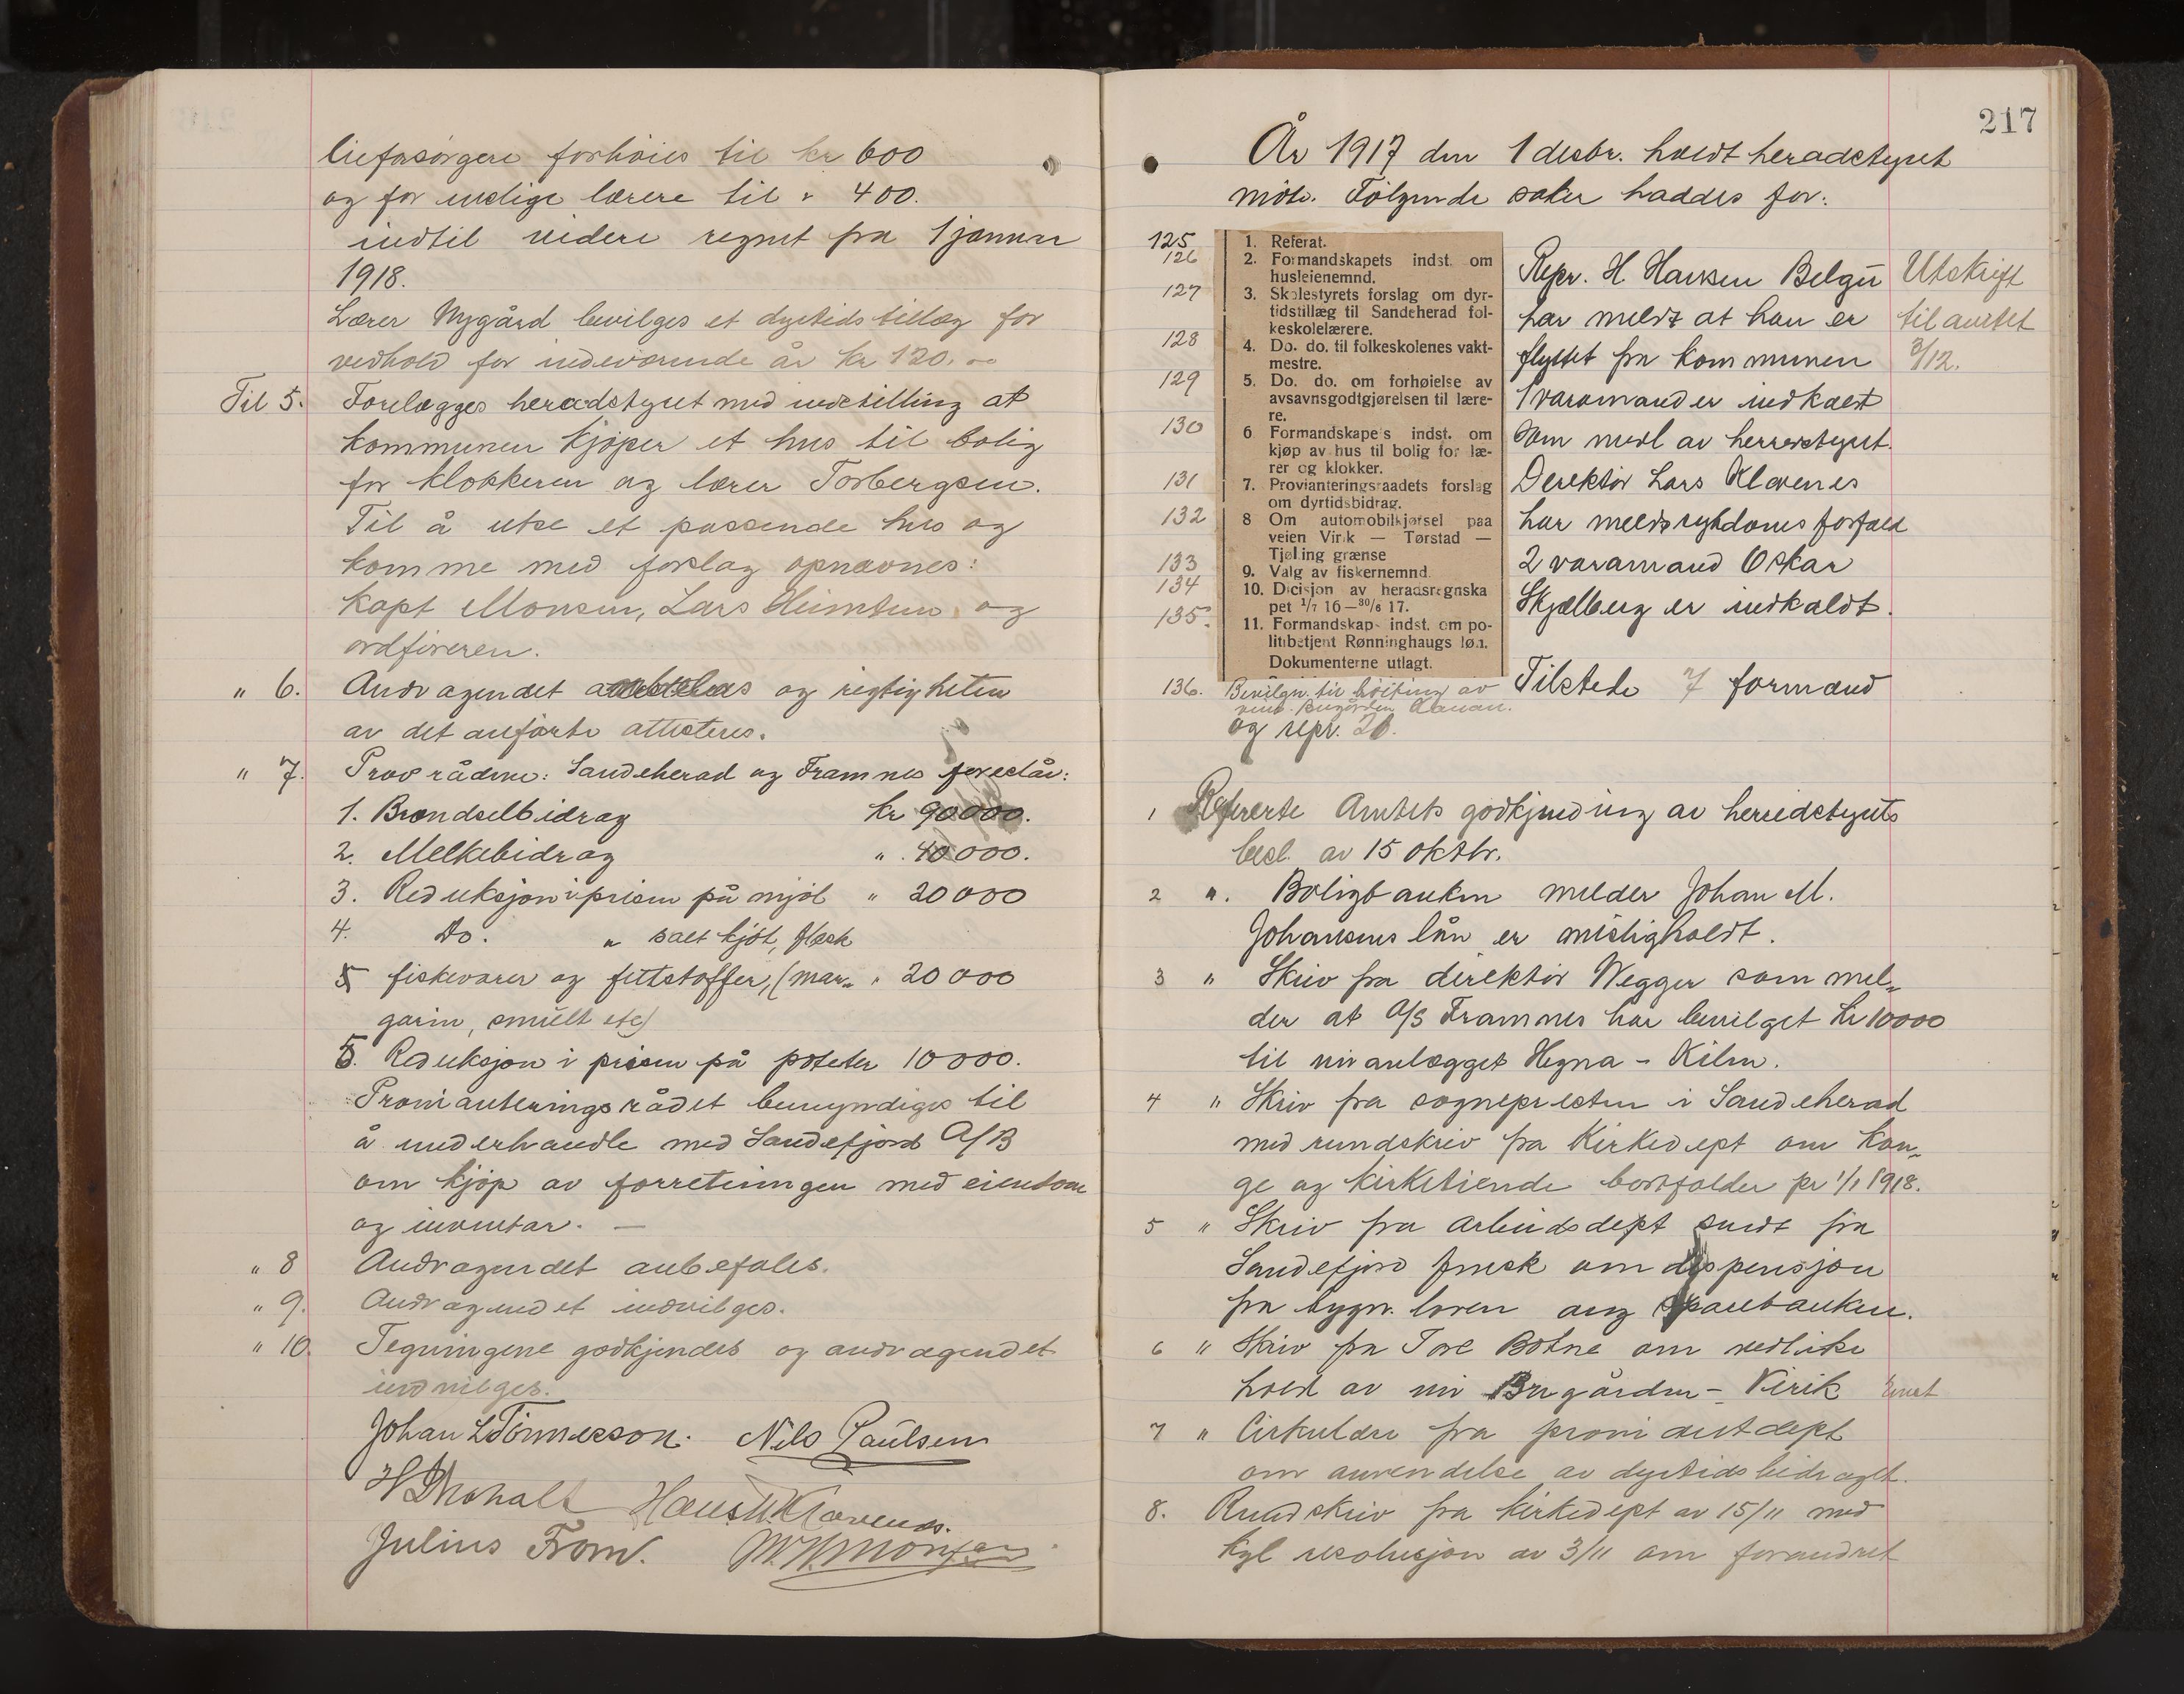 lieforsørgere forhöies til kr 600
og for enslige lærere til " 400.
indtil videre regnet fra 1 januar
1918.
Lærer Nygård bevilges et dyrtidstillæg for
vedhold for indeværende år kr 120.-
Til 5. Forelægges heradstyret med indstilling at
kommunen kjöper et hus til bolig
for klokkeren og lærer Torbergsen.
Til å utse et passende hus og
komme med forslag opnævnes:
Kapt Monsen, Lars Heimtun og
ordföreren.
" 6. Andragendet og rigtigheten
av det anförte attesteres.
" 7. Prov rådene: Sandeherad og Framnes foreslår:
1. Brændselbidrag kr 90000.
2. Melkebidrag " 40000.
3. Reduksjon i prisen på mjöl " 20000
4. Do. " salt kjöt, flæsk
5 fiskevarer og fettstoffer, (mar= " 20000
garin, smult etc)
5. Reduksjon i prisen på poteter 10000.
Provianteringsrådet bemyndiges til
å underhandle med Sandefjord A/B
om kjöp av forretningen med eiendom
og inventar. —
" 8 Andragendet anbefales.
" 9. Andragendet indvilges.
" 10. Tegningene godkjendes og andragendet
indvilges.
Johan L Tönnesson. Nils Paulsen
Hans Klavenes.
Julius From. M. Monsen
217
År 1917 den 1 desbr. holdt heradstyret
möte. Fölgende saker haddes for:
125 1. Referat.
126 2. Formandskapets indst. om
husleienemnd.
127 3. Skolestyrets forslag om dyr-
tidstillæg til Sandeherad fol-
keskolelærere.
128 4. Do. do. til folkeskolenes vakt-
mestre.
129 5. Do. do. om forhøielse av
avsavnsgodtgjørelsen til lære-
re.
130 6 Formandskapes indst. om
kjøp av hus til bolig for læ-
rer og klokker.
131 7. Provianteringsraadets forslag
om dyrtidsbidrag.
132 8 Om automobilkjørsel paa
veien Virik — Tørstad —
Tjølling grænse
133 9. Valg av fiskernemnd.
134 10. Dicisjon av heradsregnska
pet 1/7 16—30/6 17.
135. 11. Formandskaps indst. om po-
litibetjent Rønninghaugs løn.
Dokumenterne utlagt.
136. Bevilgn. til höitning av
Repr. H. Hansen Belgu
har meldt at han er
flyttet fra kommunen
1 varamand er indkaldt
som medl av herredstyret.
Derektör Lars Klavenes
har meldt sykdoms forfald
2 varamand Oskar
Skjelberg er indkaldt.
Utskrift
til amtet
3/12.
Tilstede 7 formænd
og repr. 20.
1 Refererte Amtets godkjending av herredstyrets
besl. av 15 oktbr.
2 ". Boligbanken melder Johan M.
Johansens lån er misligholdt.
3 " Skriv fra direktör Wegger som mel=
der at A/S Framnes har bevilget kr 10000
til veianlægget Hegna - Kilen.
4 " Skriv fra sognepresten i Sandeherad
med rundskriv fra Kirkedept om kon=
ge og kirketiende bortfalder pr 1/1 1918.
5 " Skriv fra Arbeidsdept sendt fra
Sandefjord fmsk om dispensjon
fra bygn. loven ang sparebanken.
6 " Skriv fra Tore Bøhne om vedlike
hold av vei Bugården - Virik
7 " Cirkulære fra proviantdept
om anvendelse av dyrtidsbidraget.
8. Rundskriv fra kirkedept av 15/11 med
kgl resolusjon av 3/11 om forandret